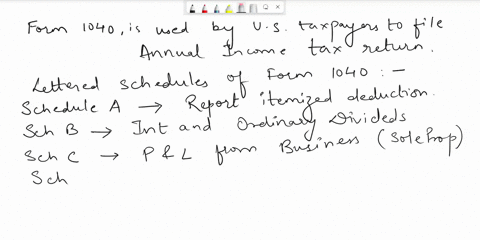 Form 1040, is used by U.S. taxpayers to file
Annual Income tax return.
Lettered schedules of Form 1040 : -
Schedule A → Report itemized deduction.
Sch B → Int and Ordinary Divideds
Sch C → P & L from Business (Sole Prop)
Sch